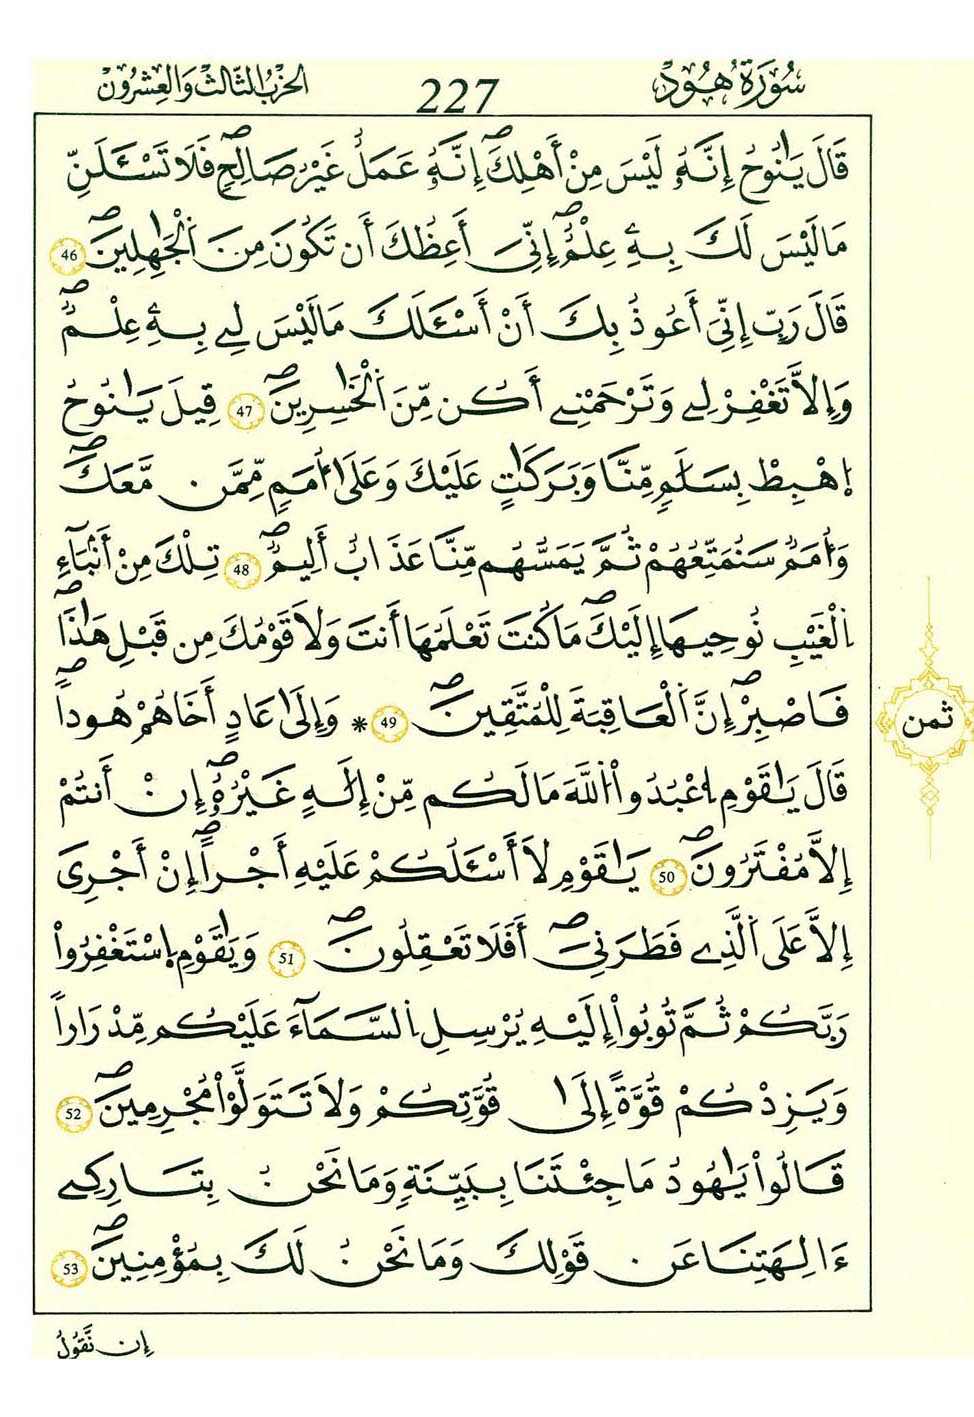 سُورَةُ هُودٍ 227 الحزبُ الثّالثُ والعِشرُون
قَالَ يَٰنُوحُ إِنَّهُۥ لَيْسَ مِنْ أَهْلِكَۖ إِنَّهُۥ عَمَلٌ غَيْرُ صَٰلِحٖۖ فَلَا تَسْـَٔلَنِّ
مَا لَيْسَ لَكَ بِهِۦ عِلْمٌۖ إِنِّيَ أَعِظُكَ أَن تَكُونَ مِنَ اَلْجَٰهِلِينَۖ 46
قَالَ رَبِّ إِنِّيَ أَعُوذُ بِكَ أَنْ أَسْـَٔلَكَ مَا لَيْسَ لِے بِهِۦ عِلْمٌۖ
وَإِلَّا تَغْفِرْ لِے وَتَرْحَمْنِے أَكُن مِّنَ اَلْخَٰسِرِينَۖ 47 قِيلَ يَٰنُوحُ
اُ۪هْبِطْ بِسَلَٰمٖ مِّنَّا وَبَرَكَٰتٍ عَلَيْكَ وَعَلَىٰٓ أُمَمٖ مِّمَّن مَّعَكَۖ
وَأُمَمٌ سَنُمَتِّعُهُمْ ثُمَّ يَمَسُّهُم مِّنَّا عَذَابٌ أَلِيمٌۖ 48 تِلْكَ مِنْ أَنۢبَآءِ
اِلْغَيْبِ نُوحِيهَا إِلَيْكَۖ مَا كُنتَ تَعْلَمُهَا أَنتَ وَلَا قَوْمُكَ مِن قَبْلِ هَٰذَاۖ
فَاصْبِرْۖ إِنَّ اَلْعَٰقِبَةَ لِلْمُتَّقِينَۖ 49 * وَإِلَىٰ عَادٍ أَخَاهُمْ هُوداٗۖ
قَالَ يَٰقَوْمِ اِ۟عْبُدُواْ اُ۬للَّهَ مَا لَكُم مِّنْ إِلَٰهٍ غَيْرُهُۥۖ إِنْ أَنتُمْ
إِلَّا مُفْتَرُونَۖ 50 يَٰقَوْمِ لَا أَسْـَٔلُكُمْ عَلَيْهِ أَجْراًۖ إِنْ أَجْرِىَ
إِلَّا عَلَى اَلَّذِے فَطَرَنِيۖ أَفَلَا تَعْقِلُونَۖ 51 وَيَٰقَوْمِ اِ۪سْتَغْفِرُواْ
رَبَّكُمْ ثُمَّ تُوبُواْ إِلَيْهِ يُرْسِلِ اِلسَّمَآءَ عَلَيْكُم مِّدْرَاراٗ
وَيَزِدْكُمْ قُوَّةً إِلَىٰ قُوَّتِكُمْ وَلَا تَتَوَلَّوْاْ مُجْرِمِينَۖ 52
قَالُواْ يَٰهُودُ مَا جِئْتَنَا بِبَيِّنَةٖ وَمَا نَحْنُ بِتَارِكِے
ءَالِهَتِنَا عَن قَوْلِكَ وَمَا نَحْنُ لَكَ بِمُؤْمِنِينَۖ 53
إِن نَّقُولُ
ثمن